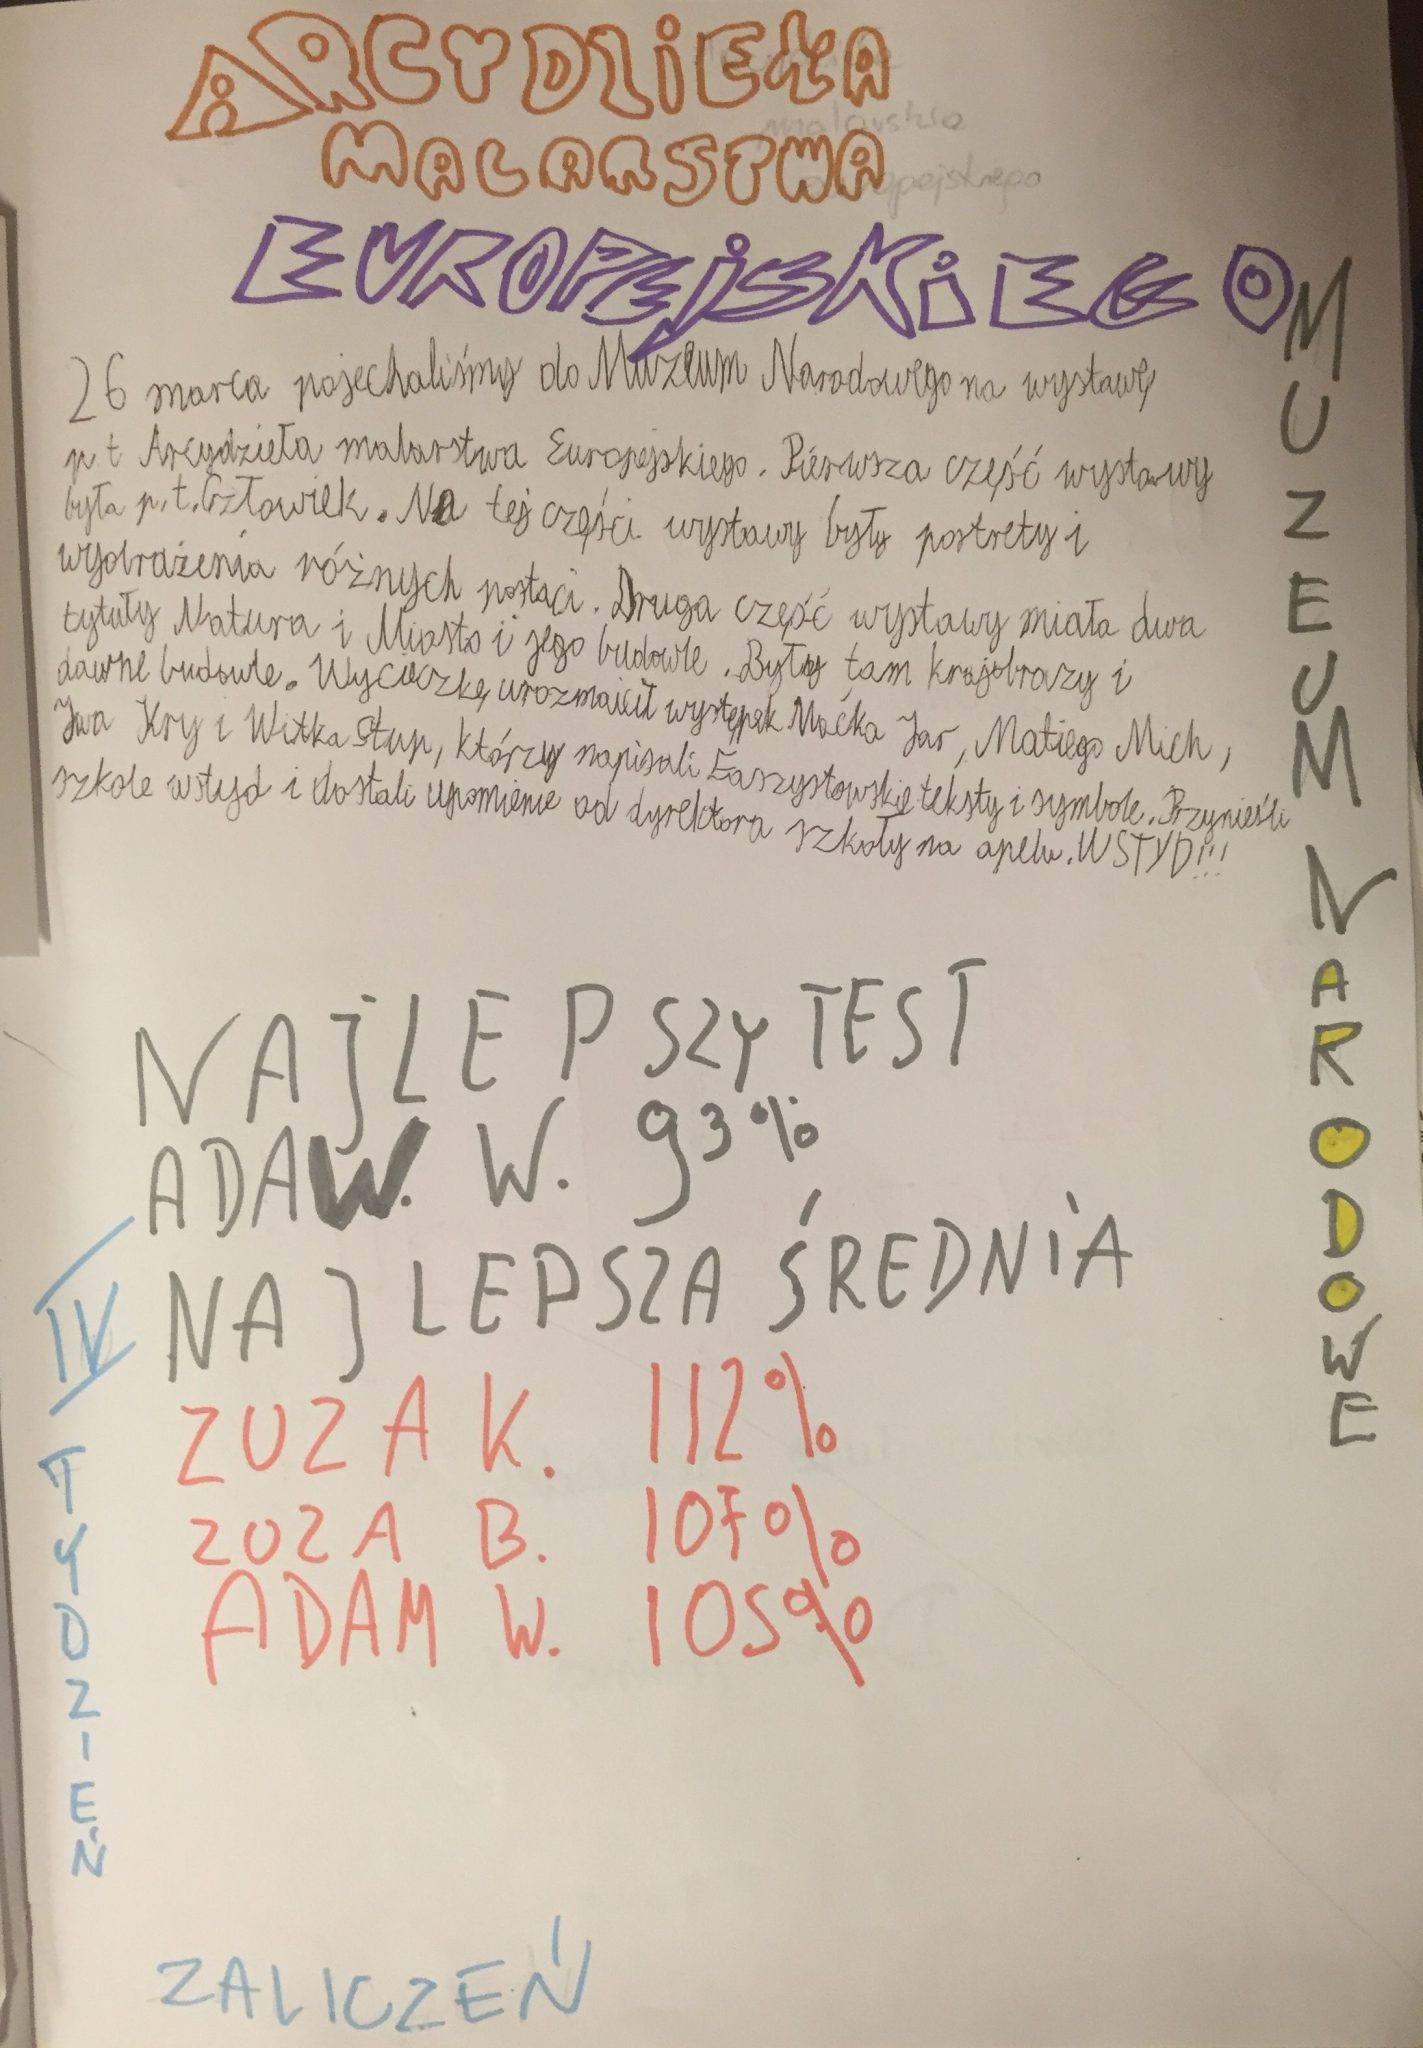 ARCYDZIEŁA
MALARSTWA
EUROPEJSKIEGO
26 marca pojechaliśmy do Muzeum Narodowego na wystawę
p.t Arcydzieła malarstwa Europejskiego. Pierwsza część wystawy
była p.t. Człowiek. Na tej części wystawy były portrety i
wyobrażenia różnych postaci. Druga część wystawy miała dwa
tytuły Natura i Miasto i jego budowle. Były tam krajobrazy i
dawne budowle. Wycieczkę urozmaicił występek Maćka Jar, Matiego Mich,
Iwa Kry i Witka Stup, którzy napisali Faszystowskie teksty i symbole. Przynieśli
szkole wstyd i dostali upomnienie od dyrektora szkoły na apelu. WSTYD!!!
MUZEUM NARODOWE
NAJLEPSZY TEST
ADAM. W. 93%
NAJLEPSZA ŚREDNIA
ZUZA K. 112%
ZUZA B. 107%
ADAM W. 105%
IV TYDZIEŃ
ZALICZEŃ
malarstwa